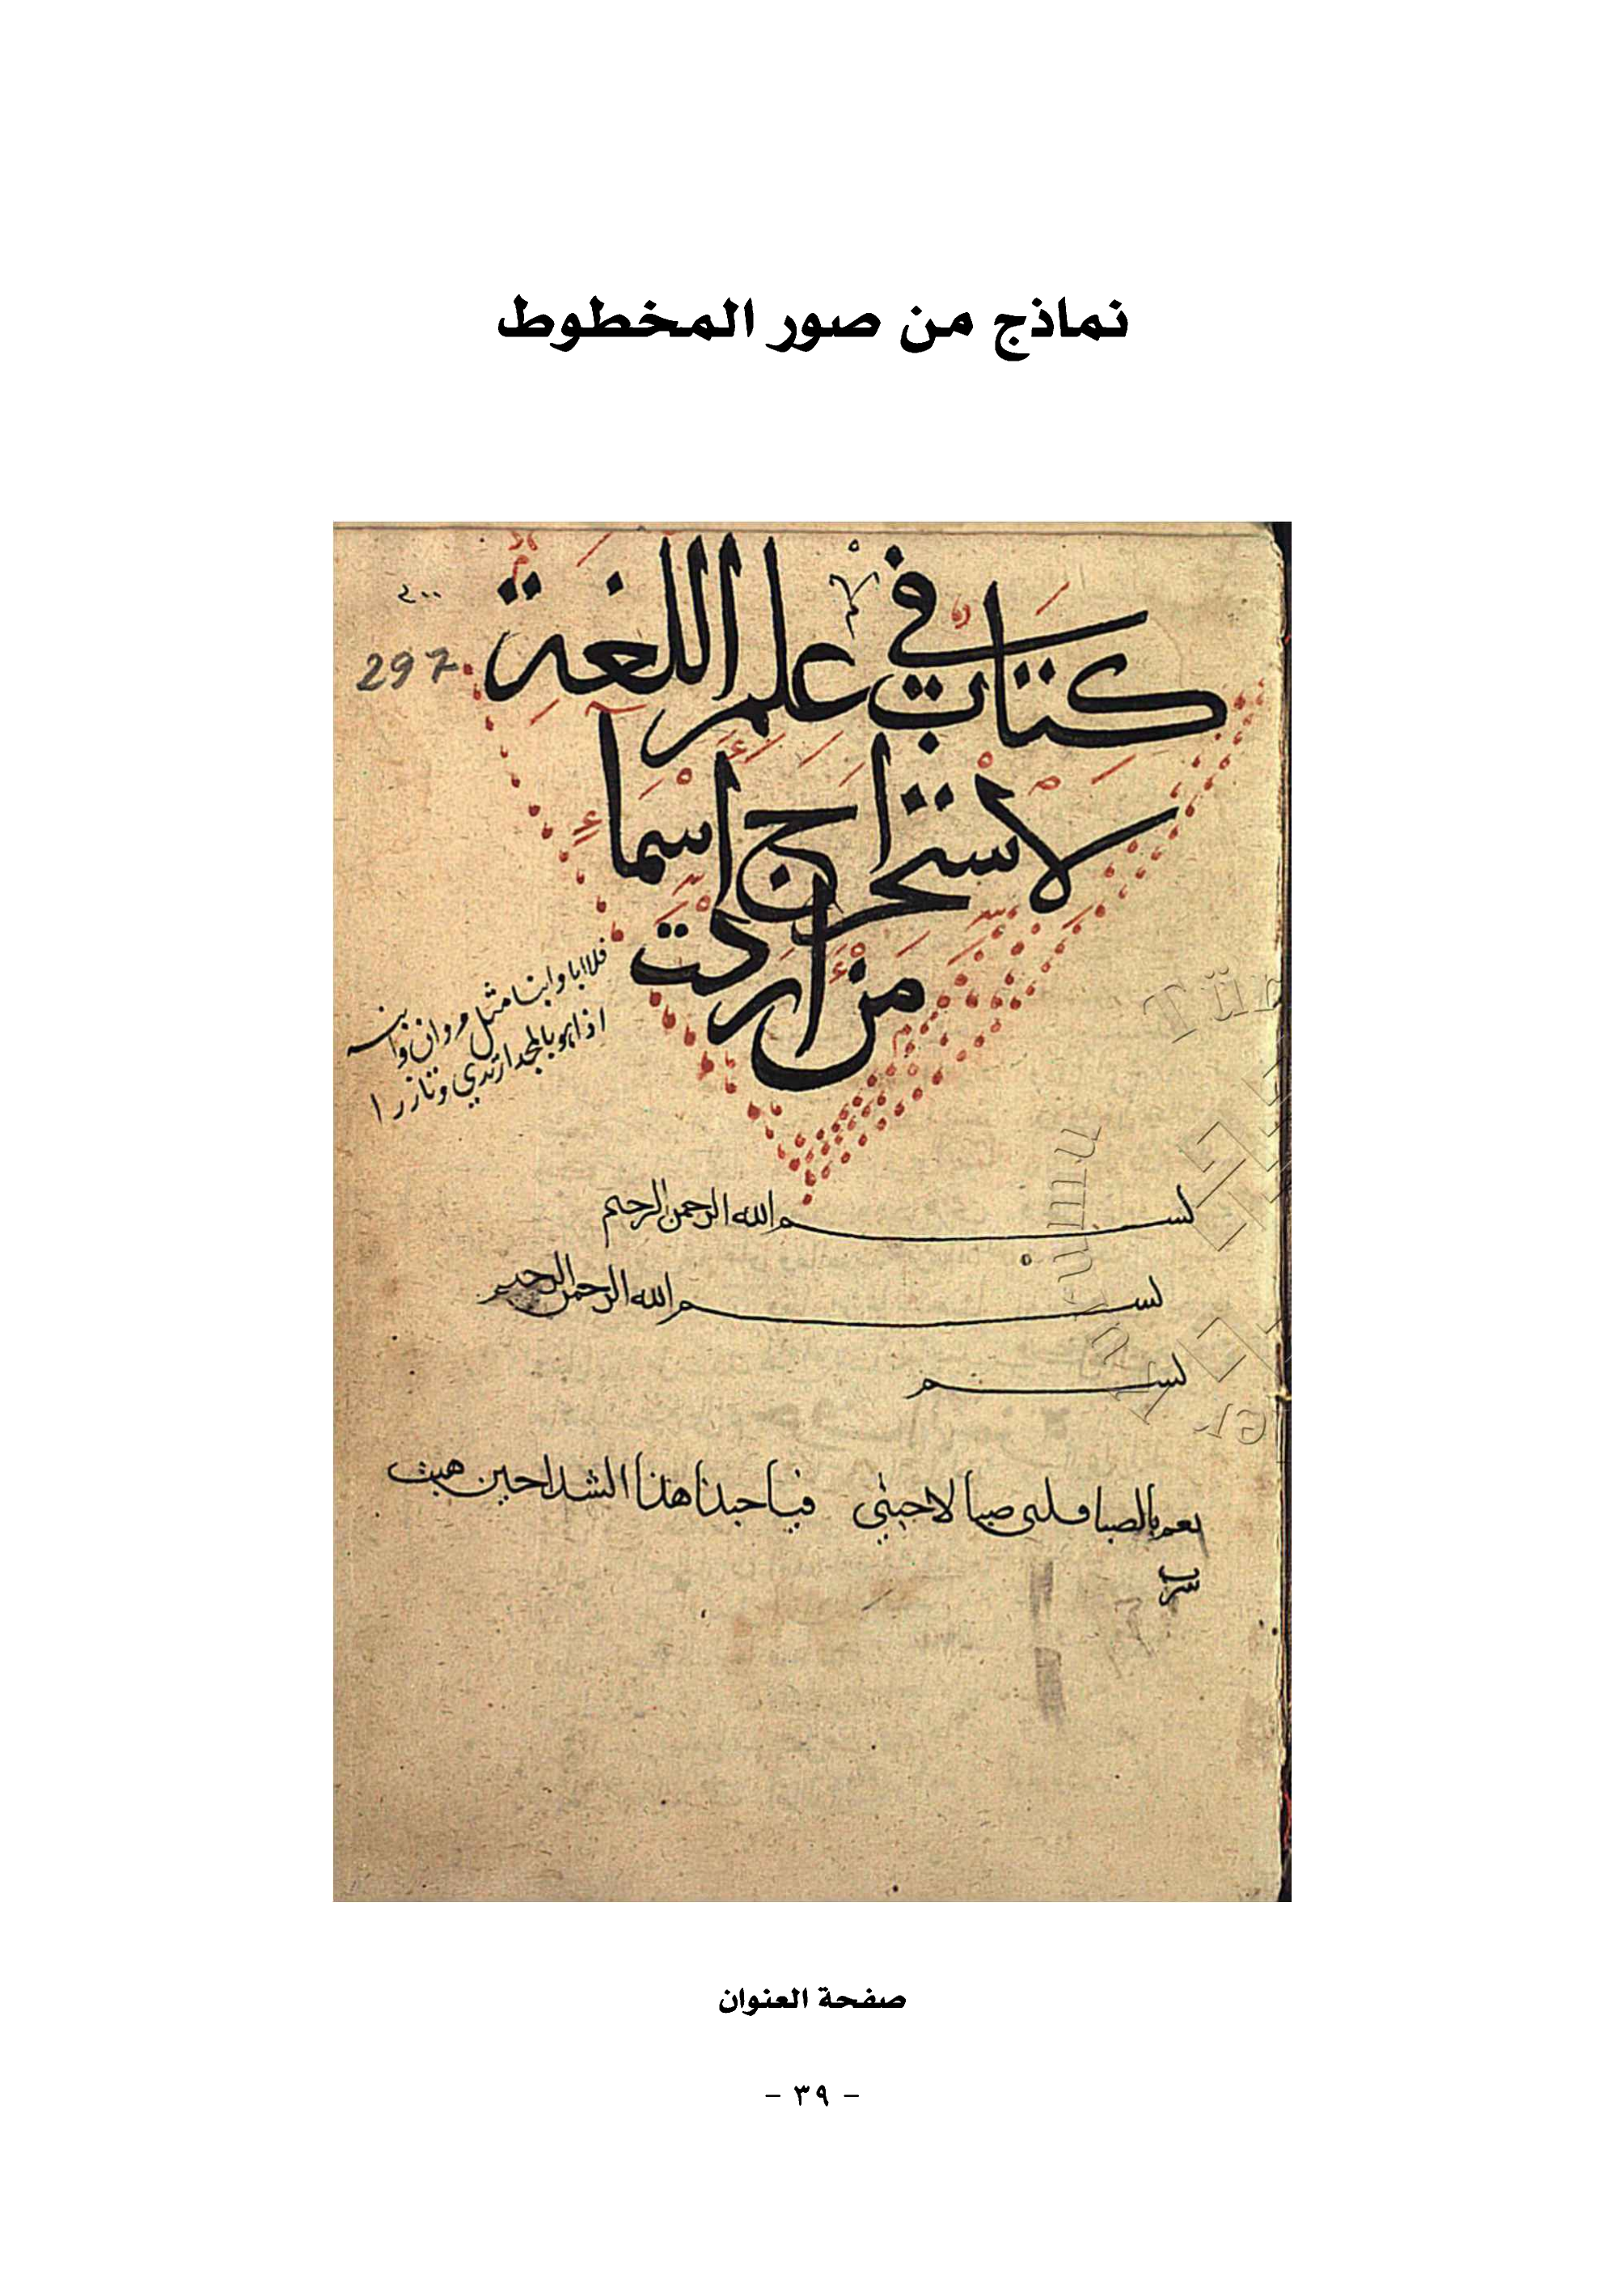 نماذج من صور المخطوط
كتاب في علم اللغة
لاستخراج اسماء
من اردت
٢٠٠
297
فلا ابا وابنا مثل مروان وابنه
اذا هو بالمجد ارتدى وتازرا
بسم الله الرحمن الرحيم
بسم الله الرحمن الرحيم
بسم
نعم بالصبا قلبي صبا لاحبتي فياحبذا هذا الشذا حين هبت
سرت
صفحة العنوان
- ٣٩ -